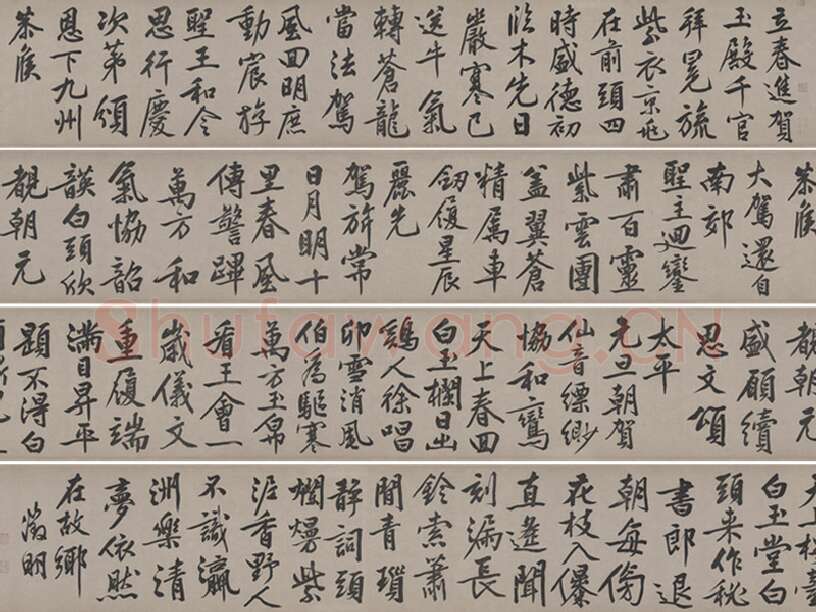 立春進賀
玉殿千官
拜冕旒
紫衣京兆
在前頭四
時盛德初
臨木先日
嚴寒已
送牛氣
轉蒼龍
當法駕
風回明庶
動宸游
聖王和令
思行慶
次第頒
恩下九州
恭候
恭候
大駕還自
南郊
聖主迴鑾
肅百靈
紫雲團
蓋翼蒼
精屬車
劒履星辰
麗先
駕旂常
日月明十
里春風
傳警蹕
萬方和
氣協韶
頀白頭欣
覩朝元
覩朝元
盛願續
思文頌
太平
元旦朝賀
仙音縹緲
協和鸞
天上春回
白玉欄日出
鷄人徐唱
卯雪消風
伯為驅寒
萬方玉帛
看王會一
歲儀文
重履端
滿目昇平
題不得白
天上樓臺
白玉堂白
頭來作秘
書郎退
朝每傍
花枝入儤
直遙聞
刻漏長
鈴索蕭
閒青瑣
静詞頭
爛熳紫
泥香野人
不識瀛
洲樂清
夢依然
在故鄉
徵明
Shufawang.CN